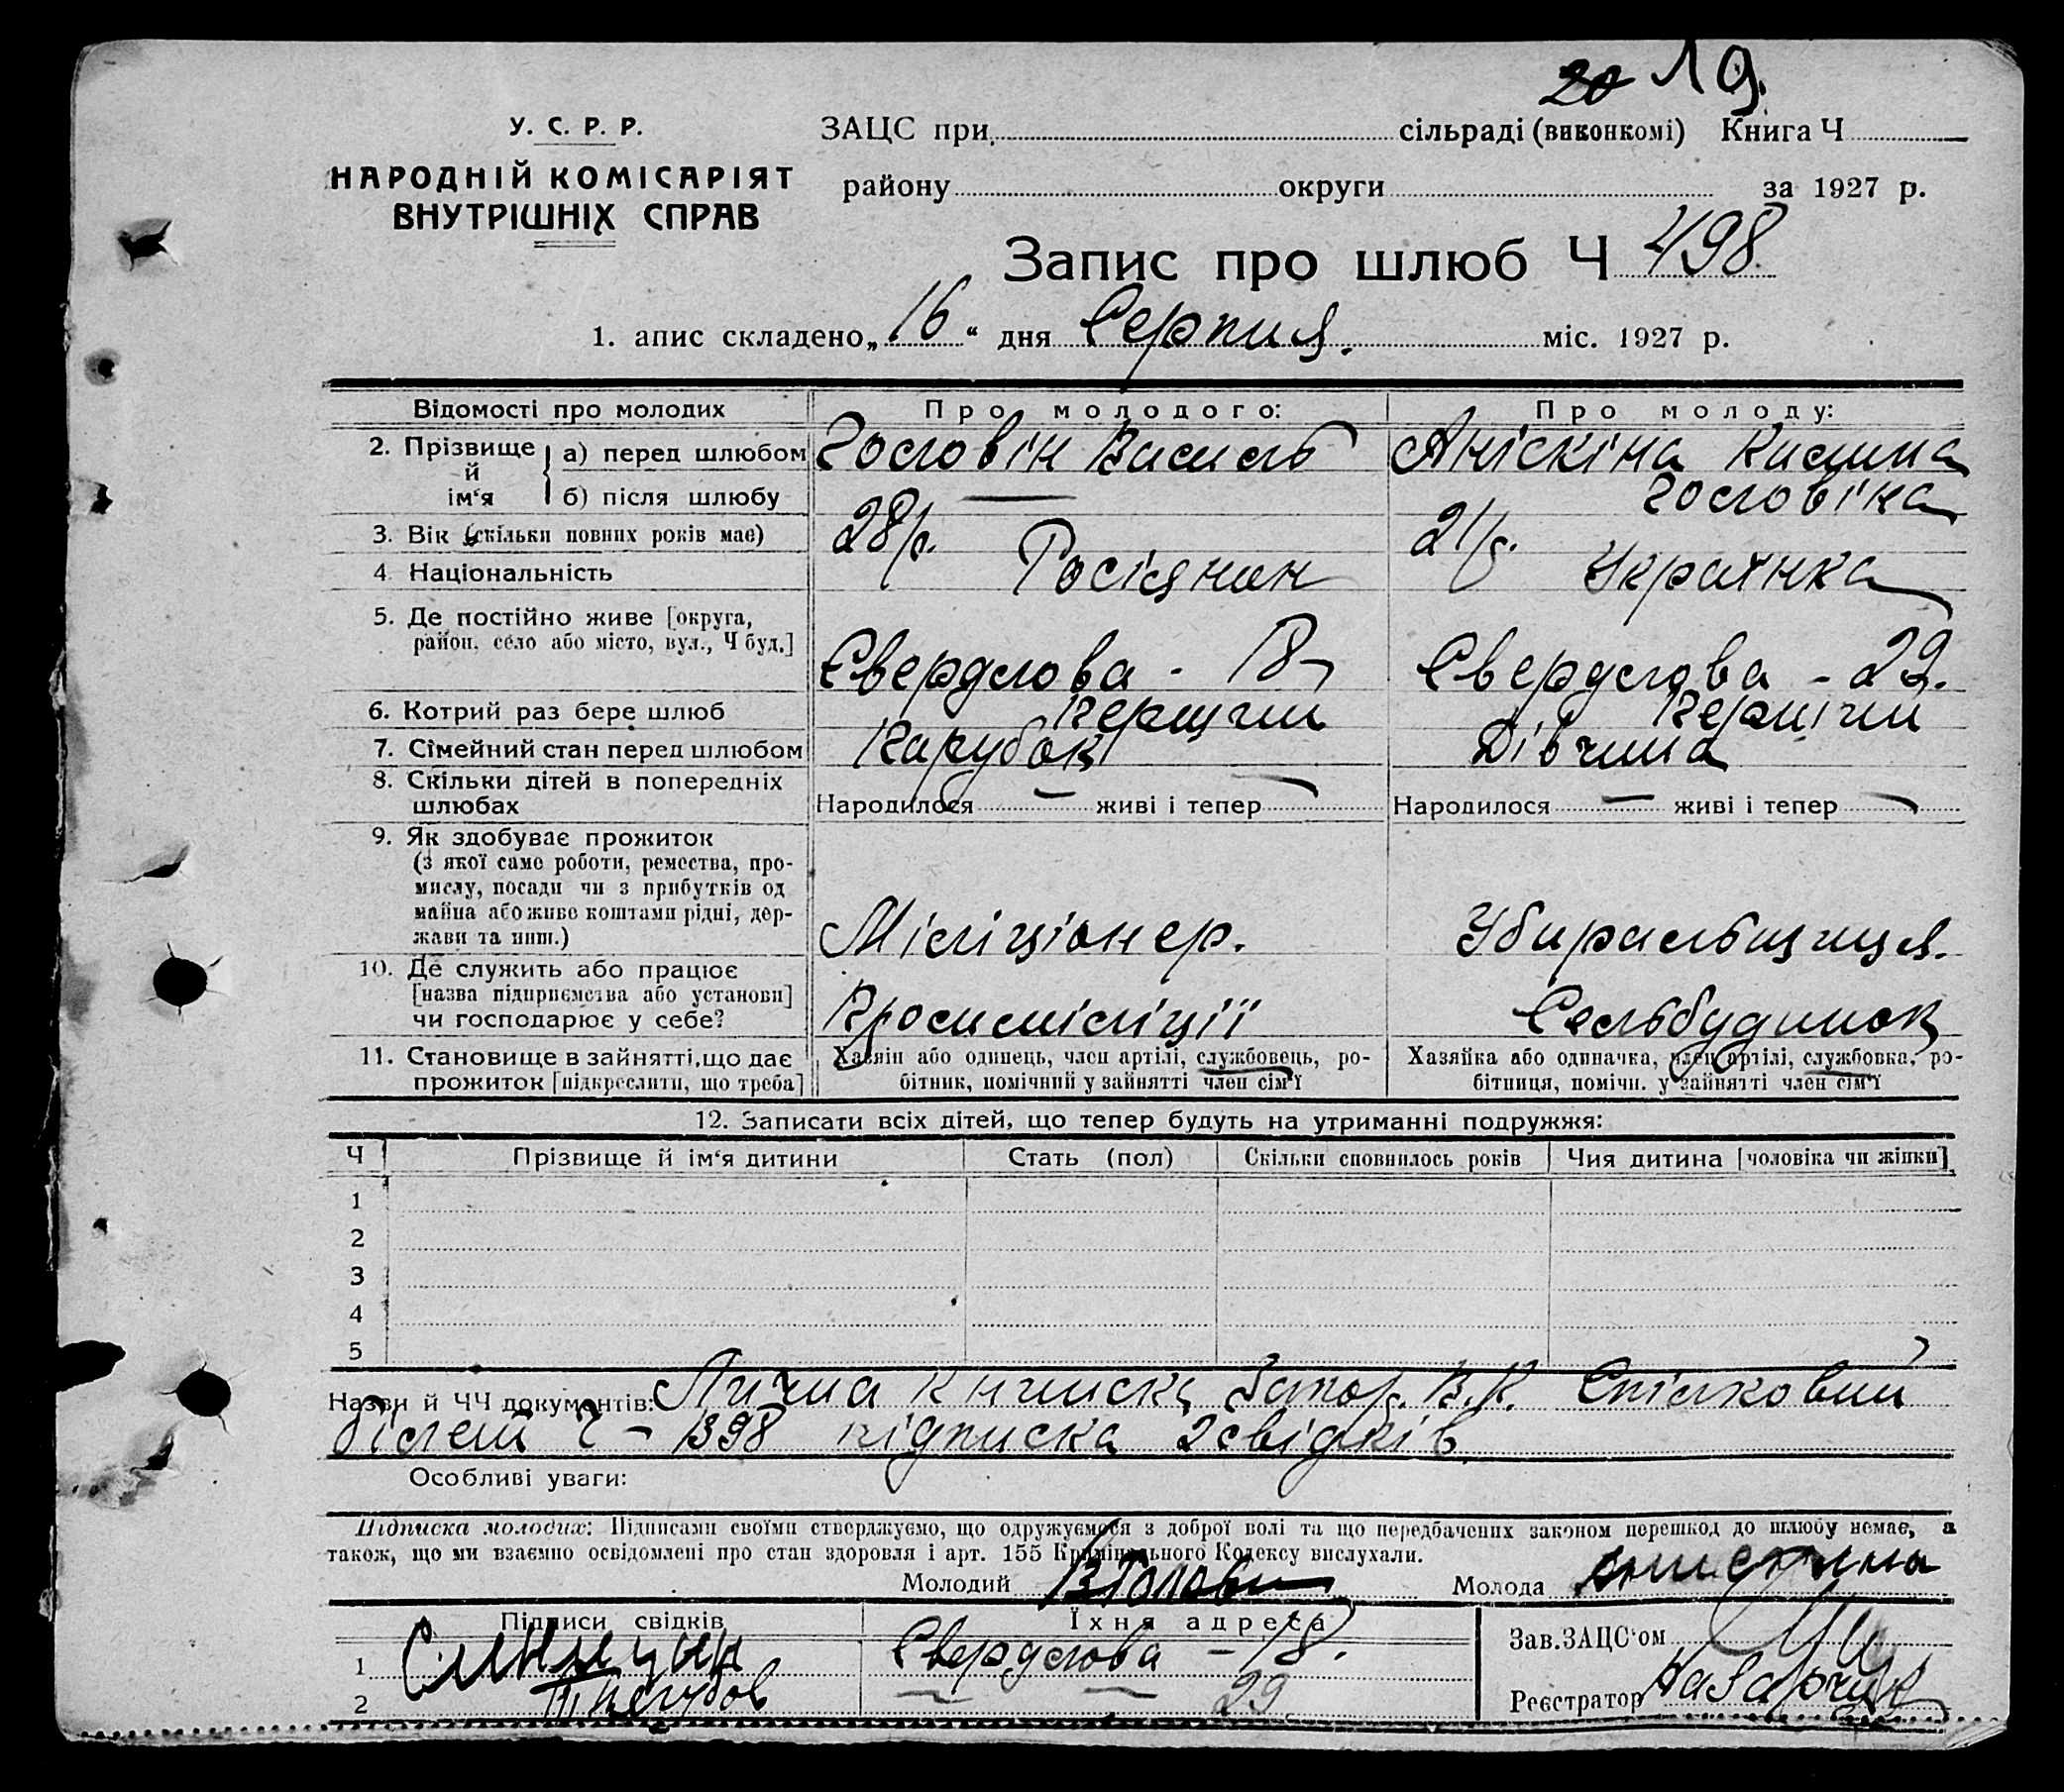 20 19.
У. С. Р. Р.
НАРОДНІЙ КОМІСАРІЯТ
ВНУТРІШНІХ СПРАВ
ЗАЦС при сільраді (виконкомі) Книга Ч
району округи за 1927 р.
Запис про шлюб Ч 498
1. апис складено „16“ дня Серпня. міс. 1927 р.
Відомості про молодих Про молодого: Про молоду:
2. Прізвище й ім‘я а) перед шлюбом Головін Василь Аніскіна
б) після шлюбу — Головіна
3. Вік (скільки повних років має) 28 р. 21 р.
4 Національність Росіянин Українка
5. Де постійно живе [округа,
район, село або місто, вул., Ч буд.] Свердлова - 18 Свердлова - 29.
6. Котрий раз бере шлюб Перший Перший
7. Сімейний стан перед шлюбом Парубок Дівчина
8. Скільки дітей в попередніх
шлюбах Народилося — живі і тепер — Народилося — живі і тепер —
9. Як здобуває прожиток
(з якої саме роботи, ремества, про-
мислу, посади чи з прибутків од
майна або живе коштами рідні, дер-
жави та инш.) Міліціонер. Убиральщиця.
10. Де служить або працює
[назва підприємства або установи]
чи господарює у себе? Промміліції Сельбудинок
11. Становище в зайнятті, що дає
прожиток [підкреслити, що треба]
Хазяін або одинець, член артілі, службовець, ро-
бітник, помічний у зайнятті член сім‘ї
Хазяйка або одиначка, член артілі, службовка, ро-
бітниця, помічн. у зайнятті член сім‘ї
12. Записати всіх дітей, що тепер будуть на утриманні подружжя:
Ч Прізвище й ім‘я дитини Стать (пол) Скільки сповнилось років Чия дитина [чоловіка чи жінки]
1
2
3
4
5
Назви й ЧЧ документів: Лична книжка Запор. В.К. Спілковий
білет Ч - 1398 підписка 2 свідків
Особливі уваги:
Підписка молодих: Підписами своїми стверджуємо, що одружуємося з доброї волі та що передбачених законом перешкод до шлюбу немає, а
також, що ми взаємно освідомлені про стан здоровля і арт. 155 Кримінального Кодексу вислухали.
Молодий ВГолови Молода Анискина
Підписи свідків Їхня адреса
1 Свердлова - 18.
2 — — 29
Зав. ЗАЦС‘ом
Реєстратор Назарчук